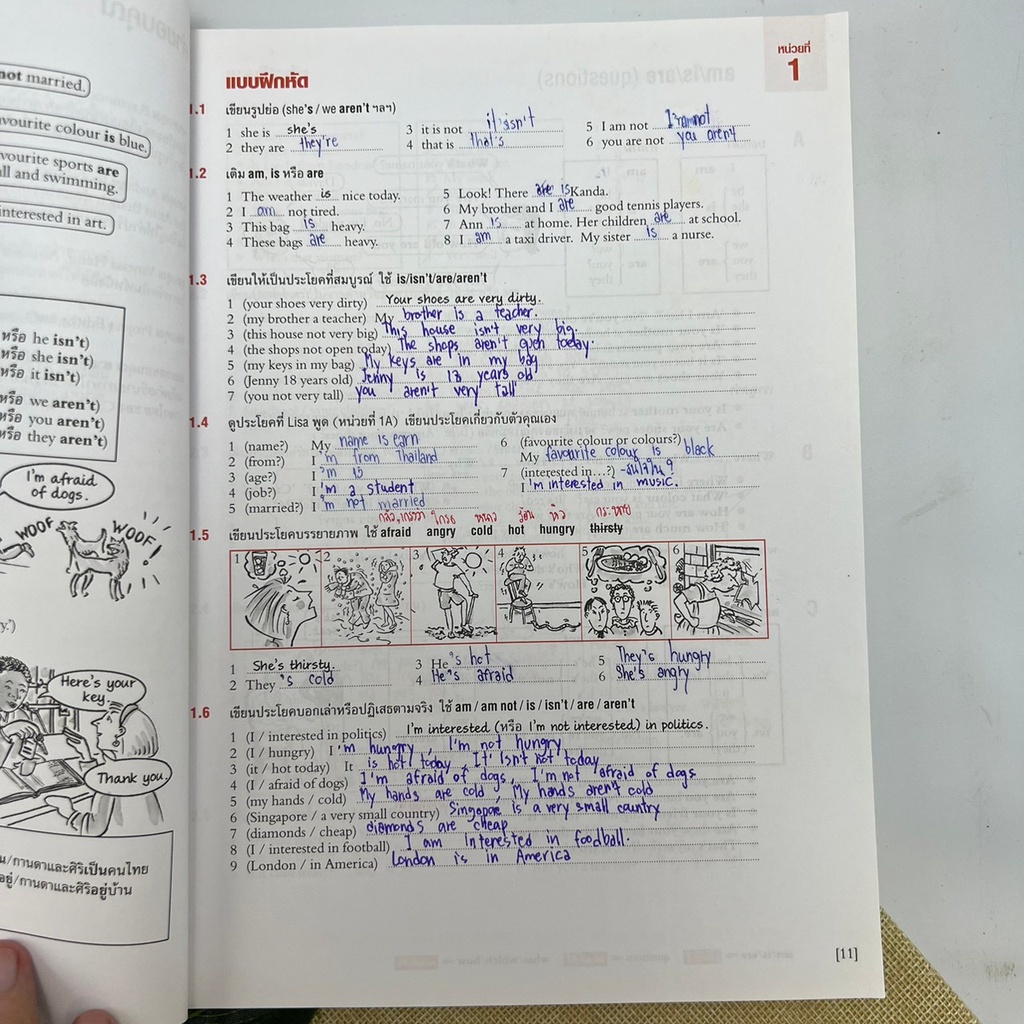 not married.
avourite colour is blue.
vourite sports are
all and swimming.
interested in art.
หรือ he isn't)
หรือ she isn't)
หรือ it isn't)
หรือ we aren't)
หรือ you aren't)
หรือ they aren't)
I'm afraid
of dogs.
WOOF
WOOF!
y.')
Here's your
key.
Thank you.
น/กานดาและศิริเป็นคนไทย
อยู่/กานดาและศิริอยู่บ้าน
หน่วยที่
1
แบบฝึกหัด
1.1 เขียนรูปย่อ (she's / we aren't ฯลฯ)
1 she is she's
2 they are they're
3 it is not it isn't
4 that is that's
5 I am not I'm not
6 you are not you aren't
1.2 เติม am, is หรือ are
1 The weather is nice today.
2 I am not tired.
3 This bag is heavy.
4 These bags are heavy.
5 Look! There are is Kanda.
6 My brother and I are good tennis players.
7 Ann is at home. Her children are at school.
8 I am a taxi driver. My sister is a nurse.
1.3 เขียนให้เป็นประโยคที่สมบูรณ์ ใช้ is/isn't/are/aren't
1 (your shoes very dirty) Your shoes are very dirty.
2 (my brother a teacher) My brother is a teacher.
3 (this house not very big) This house isn't very big.
4 (the shops not open today) The shops aren't open today.
5 (my keys in my bag) My keys are in my bag
6 (Jenny 18 years old) Jenny is 18 years old
7 (you not very tall) you aren't very tall
1.4 ดูประโยคที่ Lisa พูด (หน่วยที่ 1A) เขียนประโยคเกี่ยวกับตัวคุณเอง
1 (name?) My name is earn
2 (from?) I 'm from Thailand
3 (age?) I 'm 15
4 (job?) I 'm a student
5 (married?) I 'm not married
6 (favourite colour or colours?)
My favourite colour is black
7 (interested in...?) -สนใจใน?
I 'm interested in music.
กลัว, เกรงว่า โกรธ หนาว ร้อน หิว กระหาย
1.5 เขียนประโยคบรรยายภาพ ใช้ afraid angry cold hot hungry thirsty
1
2
3
4
5
6
1 She's thirsty.
2 They 's cold
3 He 's hot
4 He's afraid
5 They's hungry
6 She's angry
1.6 เขียนประโยคบอกเล่าหรือปฏิเสธตามจริง ใช้ am / am not / is / isn't / are / aren't
1 (I / interested in politics) I'm interested (หรือ I'm not interested) in politics.
2 (I / hungry) I 'm hungry , I'm not hungry
3 (it / hot today) It is hot today , It isn't hot today
4 (I / afraid of dogs) I'm afraid of dogs, I'm not afraid of dogs
5 (my hands / cold) My hands are cold , My hands aren't cold
6 (Singapore / a very small country) Singapore is a very small country
7 (diamonds / cheap) diamonds are cheap
8 (I / interested in football) I am interested in foodball.
9 (London / in America) London is in America
[11]